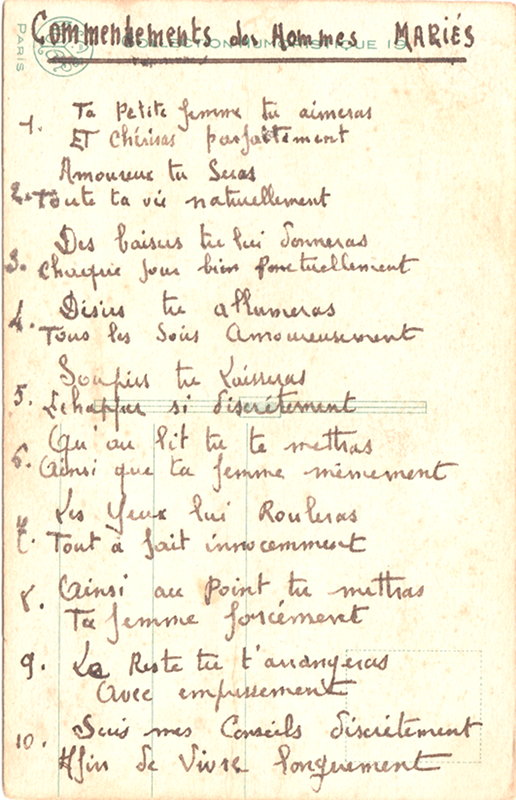 Commendements des Hommes MARIÉS
PARIS
1. Ta Petite femme tu aimeras
ET Chériras parfaitement
Amoureux tu Seras
2. Toute ta vie naturellement
Des baisers tu lui donneras
3. Chaque jour bien Ponctuellement
Désirs tu allumeras
4. Tous les Soirs Amoureusement
Soupirs tu Laisseras
5. Echapper si discrètement
Qu'au lit tu te mettras
6. Ainsi que ta femme mêmement
Les Yeux lui Rouleras
7. Tout à fait innocemment
8. Ainsi au Point tu mettras
Ta femme forcément
9. Le Reste tu t'arrangeras
Avec empressement
10. Suis mes Conseils discrètement
Afin de Vivre longuement